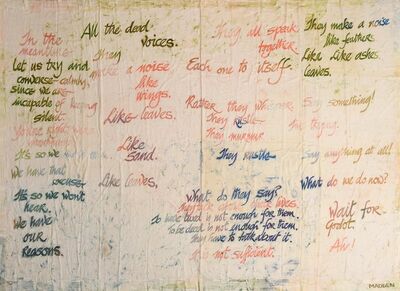 In the
meantime
let us try and
converse calmly,
since we are
incapable of keeping
silent.
You're right, we're
It's so we
We have that
excuse
It's so we won't
hear.
We have
our
Reasons.
All the dead
voices.
They
make a noise
like
wings.
Like leaves.
Like
Sand.
Like leaves.
They all speak
together.
Each one to itself.
Rather they whisper.
They rustle
They murmur
They rustle
What do they say?
They talk about their lives.
To have lived is not enough for them.
To be dead is not enough for them.
They have to talk about it.
It is not sufficient.
They make a noise
like feathers.
Like leaves.
Like ashes.
Say something!
I'm trying.
Say anything at all
What do we do now?
Wait for
Godot.
Ah!
MADDEN